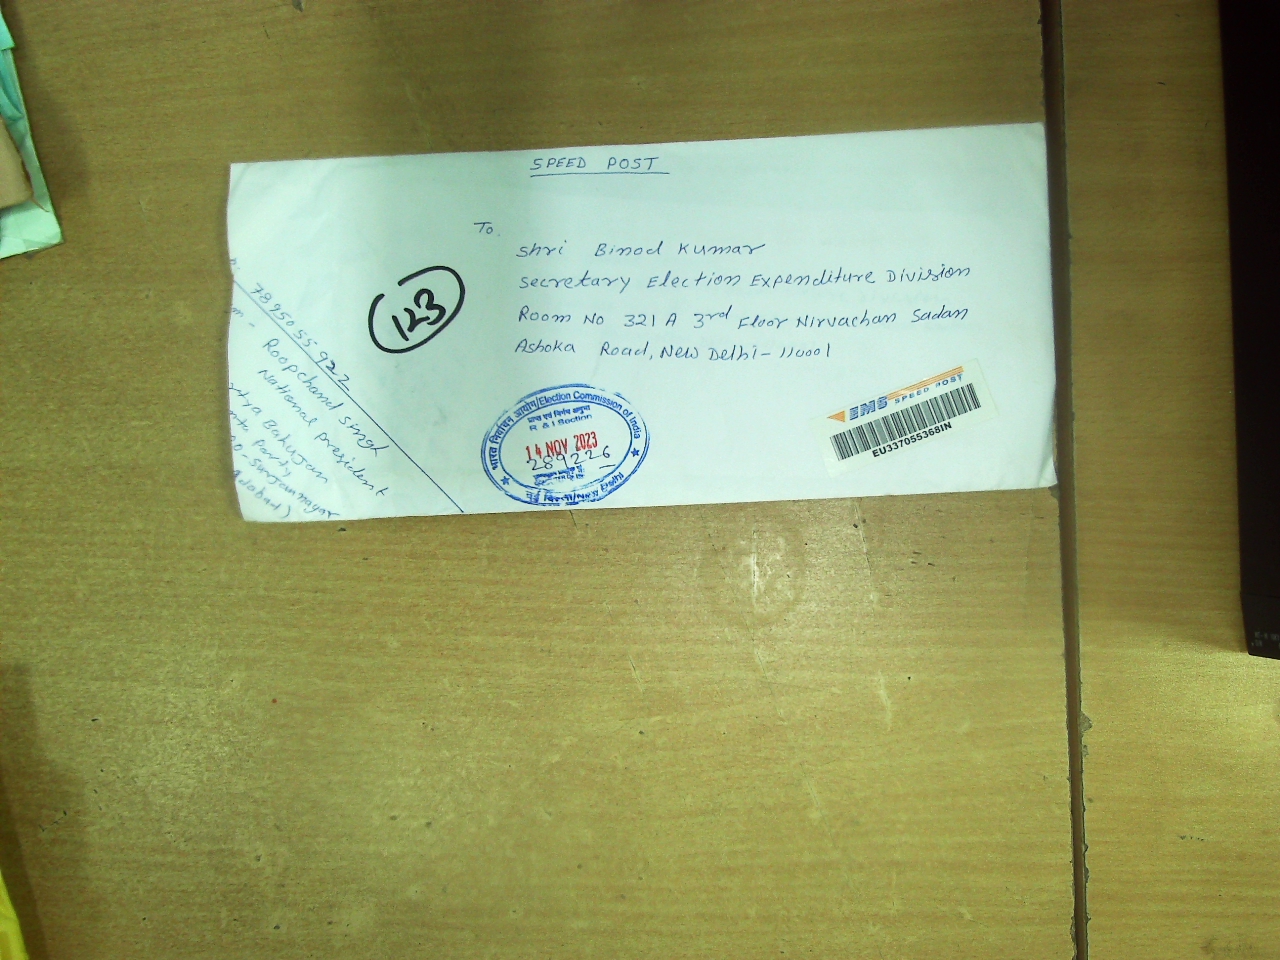 SPEED POST
To.
Shri Binod Kumar
Secretary Election Expenditure Division
Room No 321 A 3rd Floor Nirvachan Sadan
Ashoka Road, New Delhi - 110001
123
7895055922
Roopchand Singh
National president
Bahujan
Party
Surjannagar
भारत निर्वाचन आयोग/Election Commission of India
R & I Section
14 NOV 2023
289226
नई दिल्ली/New Delhi
EMS SPEED POST
EU337055368IN